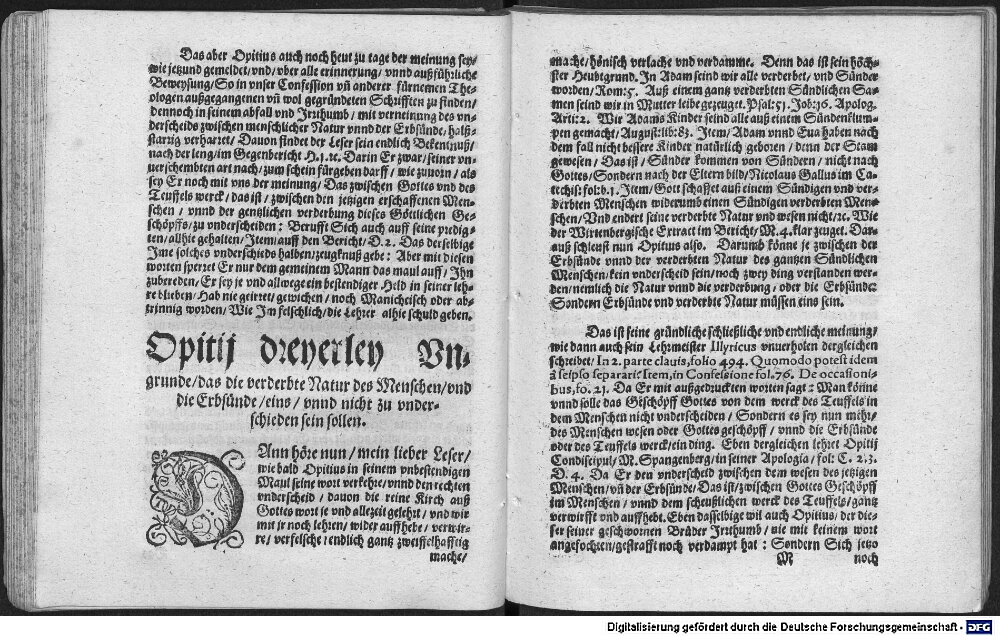 Das aber Opitius auch noch heut zu tage der meinung sey/
wie jetzund gemeldet/vnd/vber alle erinnerung/vnnd außführliche
Beweysung/So in vnser Confession vñ anderer fürnemen The-
ologen außgegangenen vñ wol gegründeten Schrifften zu finden/
dennoch in seinem abfall vnd Irrthumb/mit verneinung des vn-
derscheids zwischen menschlicher Natur vnnd der Erbsünde/halß-
starrig verharret/Dauon findet der Leser sein endlich Bekentnuß/
nach der leng/im Gegenbericht H.j.ꝛc. Darin Er zwar/seiner vn-
uerschembten art nach/zum schein fürgeben darff/wie zuuorn/als
sey Er noch mit vns der meinung/Das zwischen Gottes vnd des
Teuffels werck/das ist/zwischen den jetzigen erschaffenen Men-
schen/vnnd der gentzlichen verderbung dieses Göttlichen Ge-
schöpffs/zu vnderscheiden: Berufft Sich auch auff seine predig-
ten/allhie gehalten/Item/auff den Bericht/D.2. Das derselbige
Ime solches vnderschieds halben/zeugknuß gebe: Aber mit diesen
worten sperret Er nur dem gemeinem Mann das maul auff/Ihn
zubereden/Er sey je vnd allwege ein bestendiger Held in seiner leh-
re blieben/Hab nie geirret/gewichen/noch Manicheisch oder ab-
trinnig worden/Wie Im felschlich/die Lehrer alhie schuld geben.
Opitij dreyerley Vn-
grunde/das die verderbte Natur des Menschen/vnd
die Erbsünde/eins/vnnd nicht zu vnder-
schieden sein sollen.
DAnn höre nun/mein lieber Leser/
wie bald Opitius in seinem vnbestendigen
Maul seine wort verkehre/vnnd den rechten
vnderscheid/dauon die reine Kirch auß
Gottes wort je vnd allezeit gelehrt/vnd wir
mit jr noch lehren/wider auffhebe/verwir-
re/verfelsche/endlich gantz zweiffelhafftig
mache/
mache/hönisch verlache vnd verdamme. Denn das ist sein höch-
ster Heubtgrund. In Adam seind wir alle verderbet/vnd Sünder
worden/Rom:5. Auß einem gantz verderbten Sündlichen Sa-
men seind wir in Mutter leibe gezeuget. Psal:51. Job:36. Apolog.
Arti:2. Wir Adams Kinder seind alle auß einem Sündenklum-
pen gemacht/August:lib:83. Item/Adam vnnd Eua haben nach
dem fall nicht bessere Kinder natürlich geboren/denn der Stam
gewesen/Das ist/Sünder kommen von Sündern/nicht nach
Gottes/Sondern nach der Eltern bild/Nicolaus Gallus im Ca-
techis: fol:b.j. Item/Gott schaffet auß einem Sündigen vnd ver-
derbten Menschen widerumb einen Sündigen verderbten Men-
schen/Vnd endert seine verderbte Natur vnd wesen nicht/ꝛc. Wie
der Wirtenbergische Extract im Bericht/M.4.klar zeuget. Dar-
auß schleust nun Opitus also. Darumb könne je zwischen der
Erbsünde vnnd der verderbten Natur des gantzen Sündlichen
Menschen/kein vnderscheid sein/noch zwey ding verstanden wer-
den/nemlich die Natur vnnd die verderbung/oder die Erbsünde:
Sondern Erbsünde vnd verderbte Natur müssen eins sein.
Das ist seine gründliche schließliche vnd endliche meinung/
wie dann auch sein Lehrmeister Illyricus vnuerholen dergleichen
schreibet/In 2. parte clauis, folio 494. Quomodo potest idem
à seipso separari? Item, in Confessione fol. 76. De occasioni-
bus, fo. 21. Da Er mit außgedruckten worten sagt: Man könne
vnnd solle das Geschöpff Gottes von dem werck des Teuffels in
dem Menschen nicht vnderscheiden/Sondern es sey nun mehr/
des Menschen wesen oder Gottes geschöpff/vnnd die Erbsünde
oder des Teuffels werck/ein ding. Eben dergleichen lehret Opitij
Condiscipul/M. Spangenberg/in seiner Apologia/fol: C. 2.3.
D. 4. Da Er den vnderscheid zwischen dem wesen des jetzigen
Menschen/vñ der Erbsünde/Das ist/zwischen Gottes Geschöpff
im Menschen/vnnd dem scheußlichen werck des Teuffels/gantz
verwirfft vnd auffhebt. Eben dasselbige wil auch Opitius/der die-
ser seiner geschwornen Brüder Irrthumb/nie mit keinem wort
angefochten/gestrafft noch verdampt hat: Sondern Sich jetzo
M noch
Digitalisierung gefördert durch die Deutsche Forschungsgemeinschaft - DFG